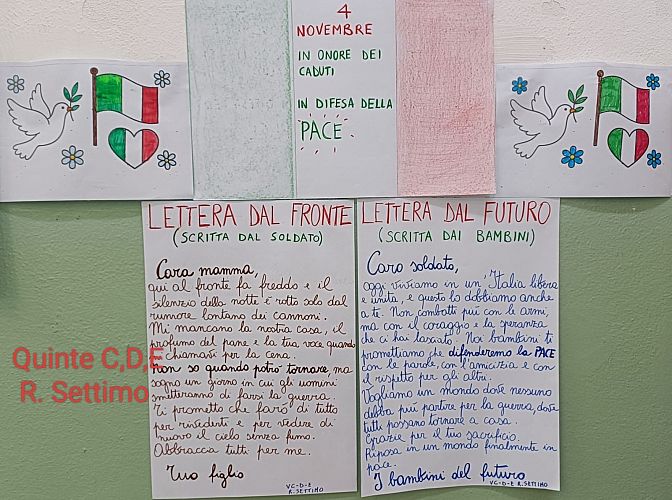 4
NOVEMBRE
IN ONORE DEI
CADUTI
IN DIFESA DELLA
PACE
LETTERA DAL FRONTE
(SCRITTA DAL SOLDATO)
Cara mamma,
qui al fronte fa freddo e il
silenzio della notte è rotto solo dal
rumore lontano dei cannoni.
Mi mancano la nostra casa, il
profumo del pane e la tua voce quando
chiamavi per la cena.
Non so quando potrò tornare, ma
sogno un giorno in cui gli uomini
smetteranno di farsi la guerra.
Ti prometto che farò di tutto
per rivederti e per vedere di
nuovo il cielo senza fumo.
Abbraccia tutti per me.
Tuo figlio
VC-D-E
R. SETTIMO
LETTERA DAL FUTURO
(SCRITTA DAI BAMBINI)
Caro soldato,
oggi viviamo in un'Italia libera
e unita, e questo lo dobbiamo anche
a te. Non combatti più con le armi,
ma con il coraggio e la speranza
che ci hai lasciato. Noi bambini ti
promettiamo che difenderemo la PACE
con le parole, con l'amicizia e con
il rispetto per gli altri.
Vogliamo un mondo dove nessuno
debba più partire per la guerra, dove
tutti possano tornare a casa.
Grazie per il tuo sacrificio.
Riposa in un mondo finalmente in
pace.
I bambini del futuro
VC-D-E
R. SETTIMO
Quinte C,D,E
R. Settimo